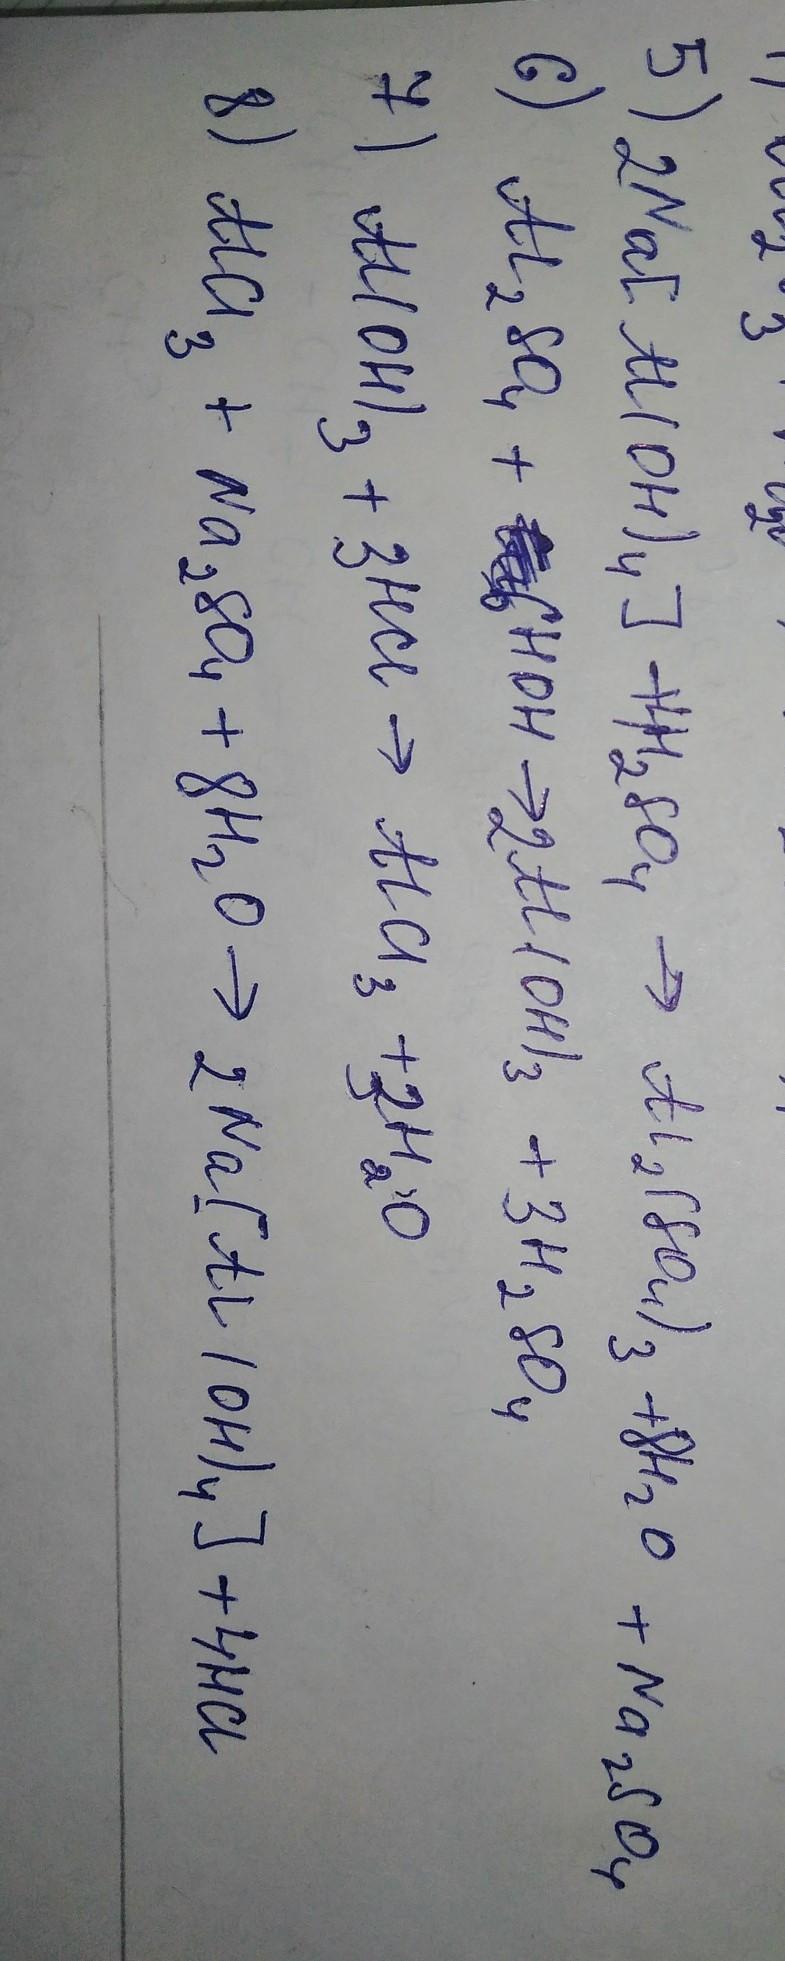 5) 2Na[Al(OH)4] + 4H2SO4 → Al2(SO4)3 + 8H2O + Na2SO4
6) Al2SO4 + 6HOH → 2Al(OH)3 + 3H2SO4
7) Al(OH)3 + 3HCl → AlCl3 + 3H2O
8) AlCl3 + Na2SO4 + 8H2O → 2Na[Al(OH)4] + 4HCl